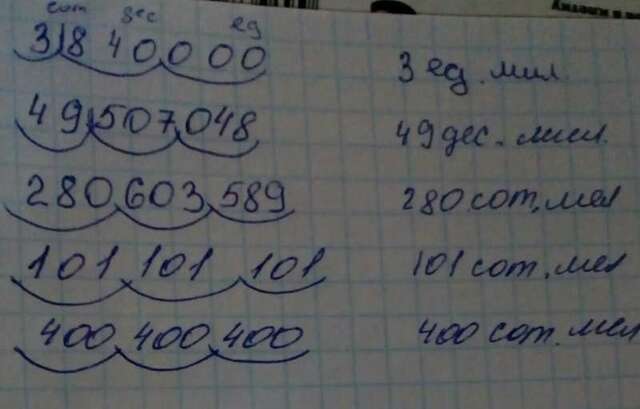 сот дес ед
3 840 000 3 ед. мил.
49 507 048 49 дес. мил.
280 603 589 280 сот. мел
101 101 101 101 сот. мел
400 400 400 400 сот. мел